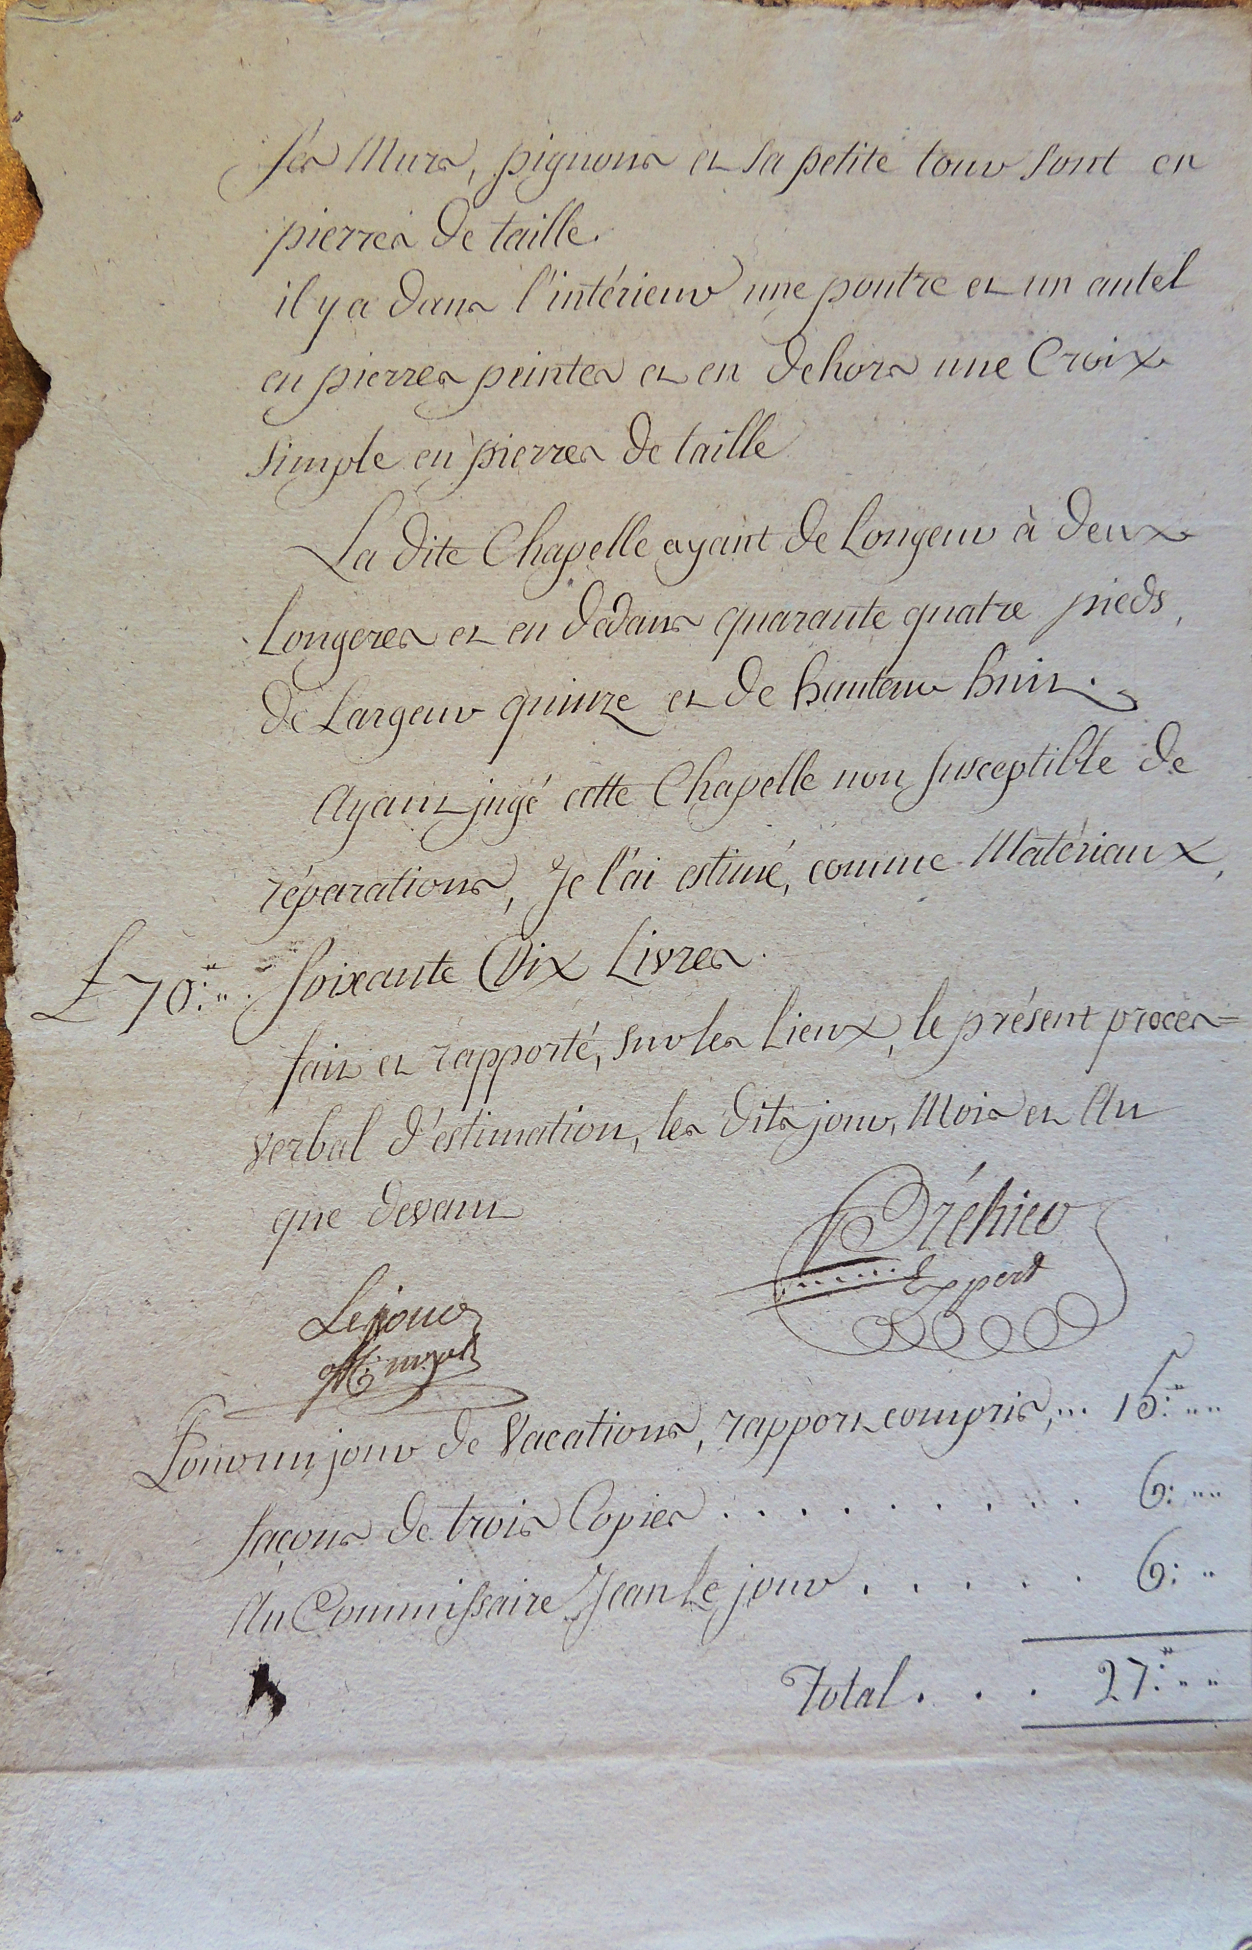 ses Murs, pignons et sa petite tour sont en
pierres de taille.
il y a dans l'intérieur une poutre et un autel
en pierres peintes et en dehors une Croix
simple en pierres de taille
La dite Chapelle ayant de Longeur à deux
Longeres et en dedans quarante quatre pieds,
de Largeur quinze et de hauteur huit.
Ayant jugé cette Chapelle non susceptible de
réparations, Je l'ai estimé, comme Matériaux,
£ 70:" ". Soixante Dix Livres.
fait et rapporté, sur les Lieux, le présent procès=
verbal d'estimation, les dits jour, Mois et An
que devant
Bréhier
Expert
Lejour
Pour un jour de Vacations, rapport compris, ... 15:" "
façons de trois Copies . . . . . . . . . . 6: " "
Au Commissaire Jean Le jour . . . . . 6: "
Total . . . 27:" "